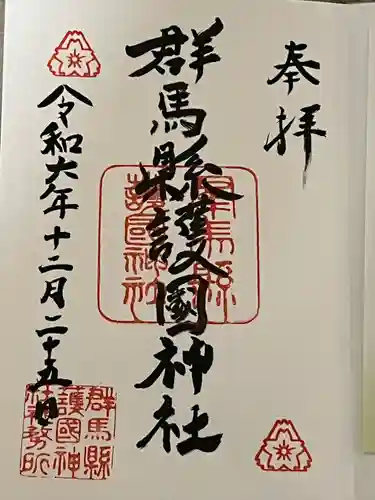 奉拝
群馬縣護國神社
令和六年十二月二十五日
群馬縣護國神社
群馬縣護國神社務所